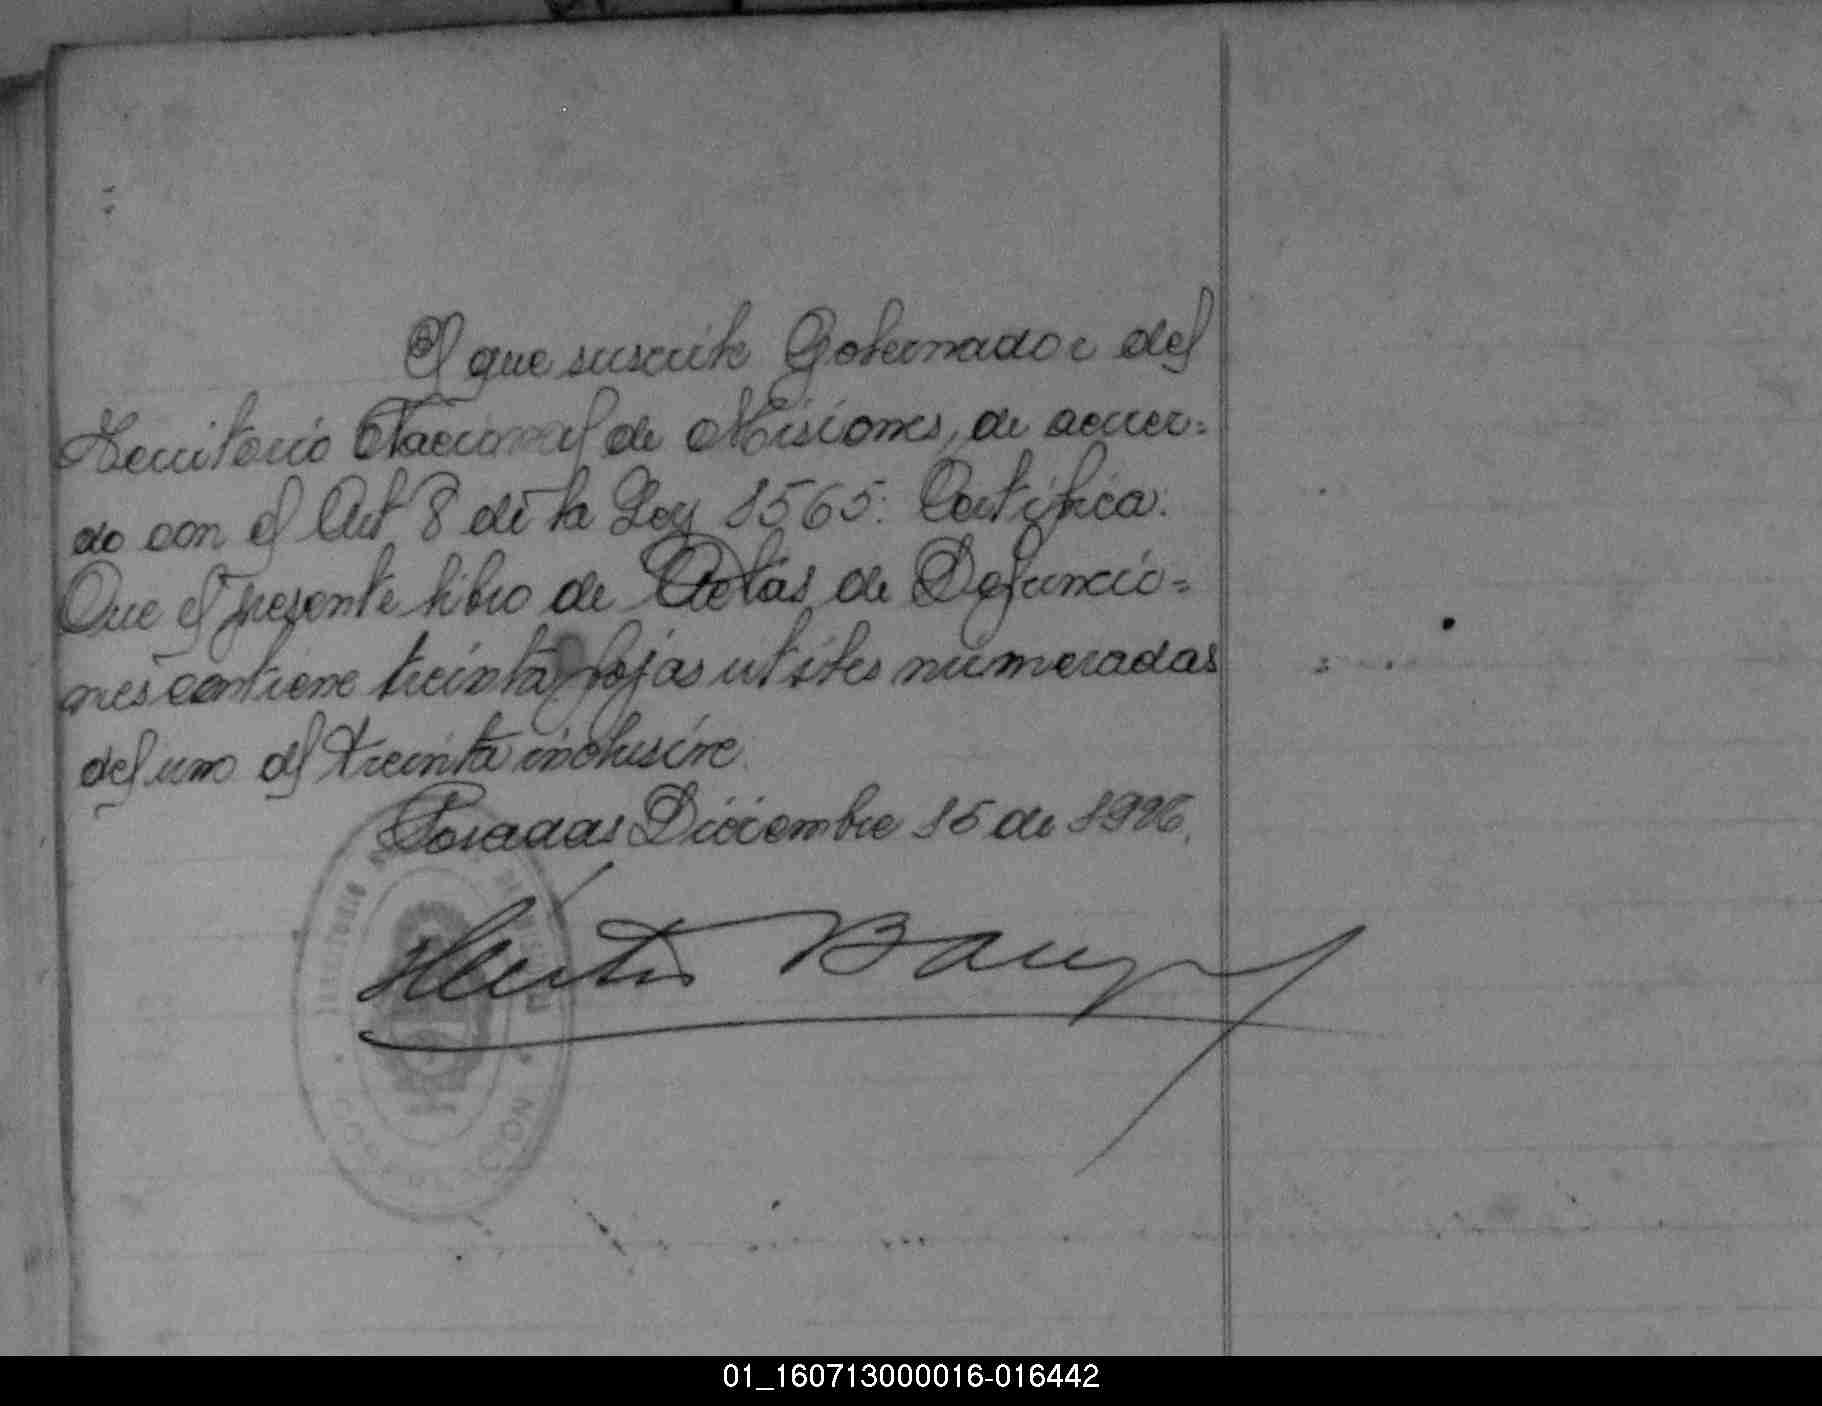 El que suscribe Gobernador del
Territorio Nacional de Misiones, de acuer=
do con el Art 8 de la Ley 1565: Certifica:
Que el presente libro de Actas de Defuncio=
nes contiene treinta fojas utiles numeradas
del uno al treinta inclusive.
Posadas Diciembre 15 de 1926.
Héctor Barreyro
TERRITORIO DE MISIONES
GOBERNACION
01_160713000016-016442